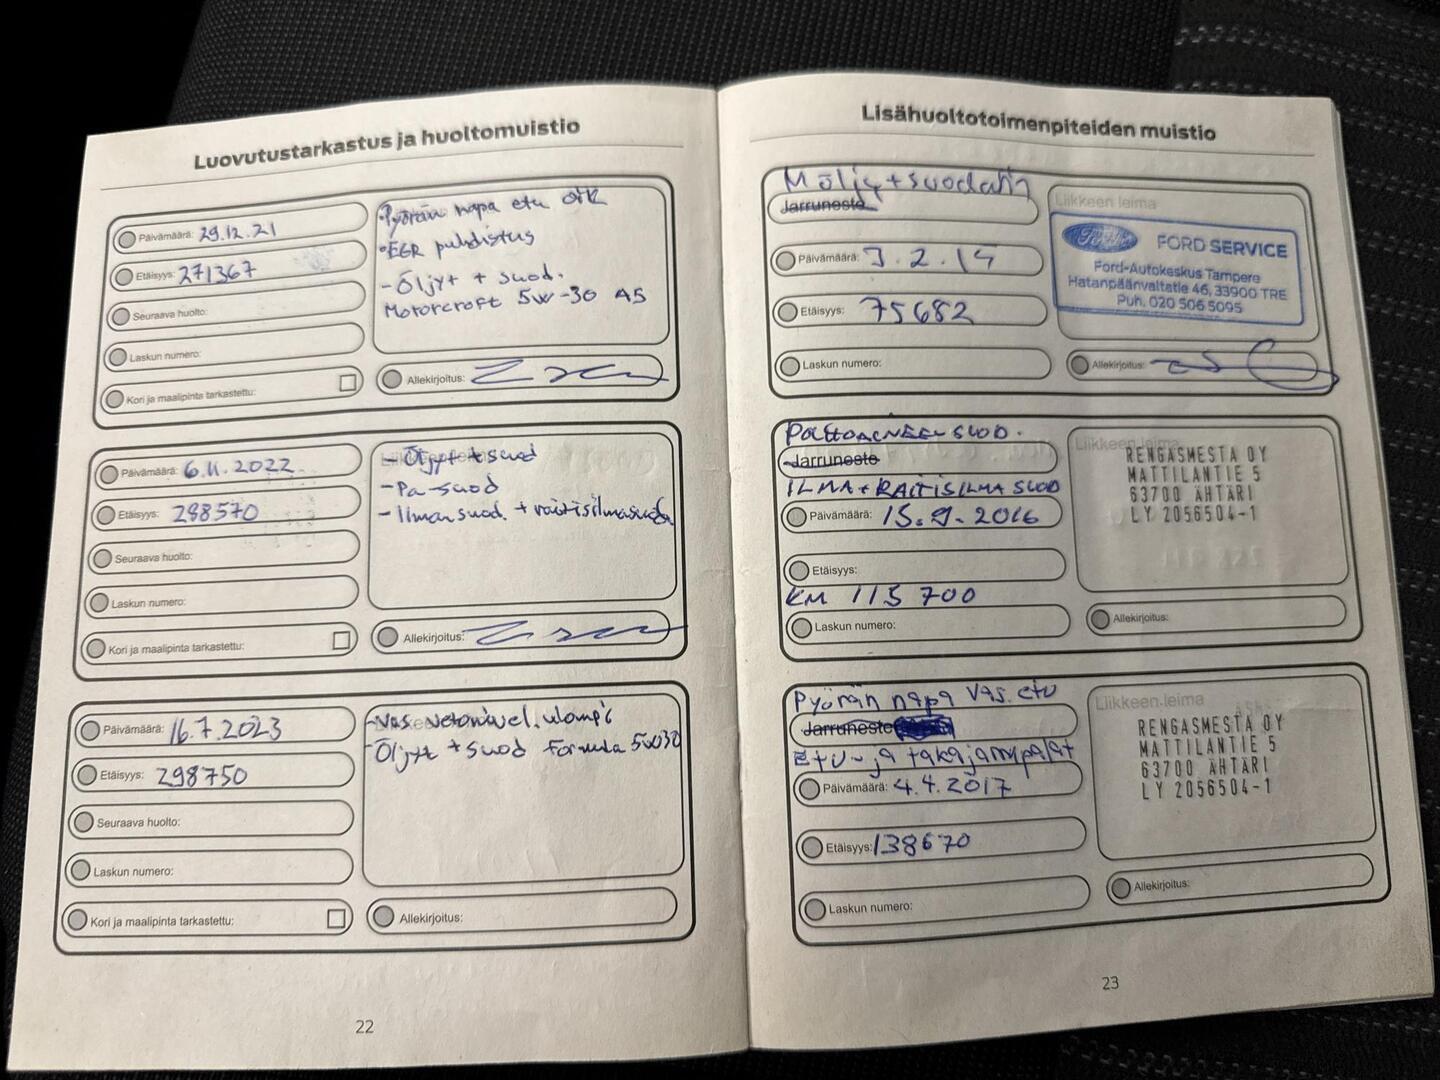 Luovutustarkastus ja huoltomuistio
Päivämäärä: 29.12.21
Etäisyys: 271367
Seuraava huolto:
Laskun numero:
Kori ja maalipinta tarkastettu:
•Pyörän napa etu oik
•EGR puhdistus
-Öljyt + suod.
Motorcroft 5W-30 A5
Allekirjoitus:
Päivämäärä: 6.11.2022
Etäisyys: 288570
Seuraava huolto:
Laskun numero:
Kori ja maalipinta tarkastettu:
-Öljyt + suod
-Pa-suod
-Ilman suod. + raitisilmasuod
Allekirjoitus:
Päivämäärä: 16.7.2023
Etäisyys: 298750
Seuraava huolto:
Laskun numero:
Kori ja maalipinta tarkastettu:
-Vas. vetonivel. ulompi
-Öljyt + suod Formula 5W30
Allekirjoitus:
22
Lisähuoltotoimenpiteiden muistio
Möljy + suodatin
Jarruneste
Päivämäärä: 3.2.15
Etäisyys: 75682
Laskun numero:
Liikkeen leima
Ford FORD SERVICE
Ford-Autokeskus Tampere
Hatanpäänvaltatie 46, 33900 TRE
Puh. 020 506 5095
Allekirjoitus:
POLTTOAINEEN SUOD.
Jarruneste
ILMA + RAITISILMA SUOD
Päivämäärä: 15.9.2016
Etäisyys:
KM 115 700
Laskun numero:
Liikkeen leima
RENGASMESTA OY
MATTILANTIE 5
63700 ÄHTÄRI
LY 2056504-1
Allekirjoitus:
Pyörän napa Vas. etu
Jarruneste
Etu- ja takajarrupalat
Päivämäärä: 4.4.2017
Etäisyys: 138670
Laskun numero:
Liikkeen leima
RENGASMESTA OY
MATTILANTIE 5
63700 ÄHTÄRI
LY 2056504-1
Allekirjoitus:
23